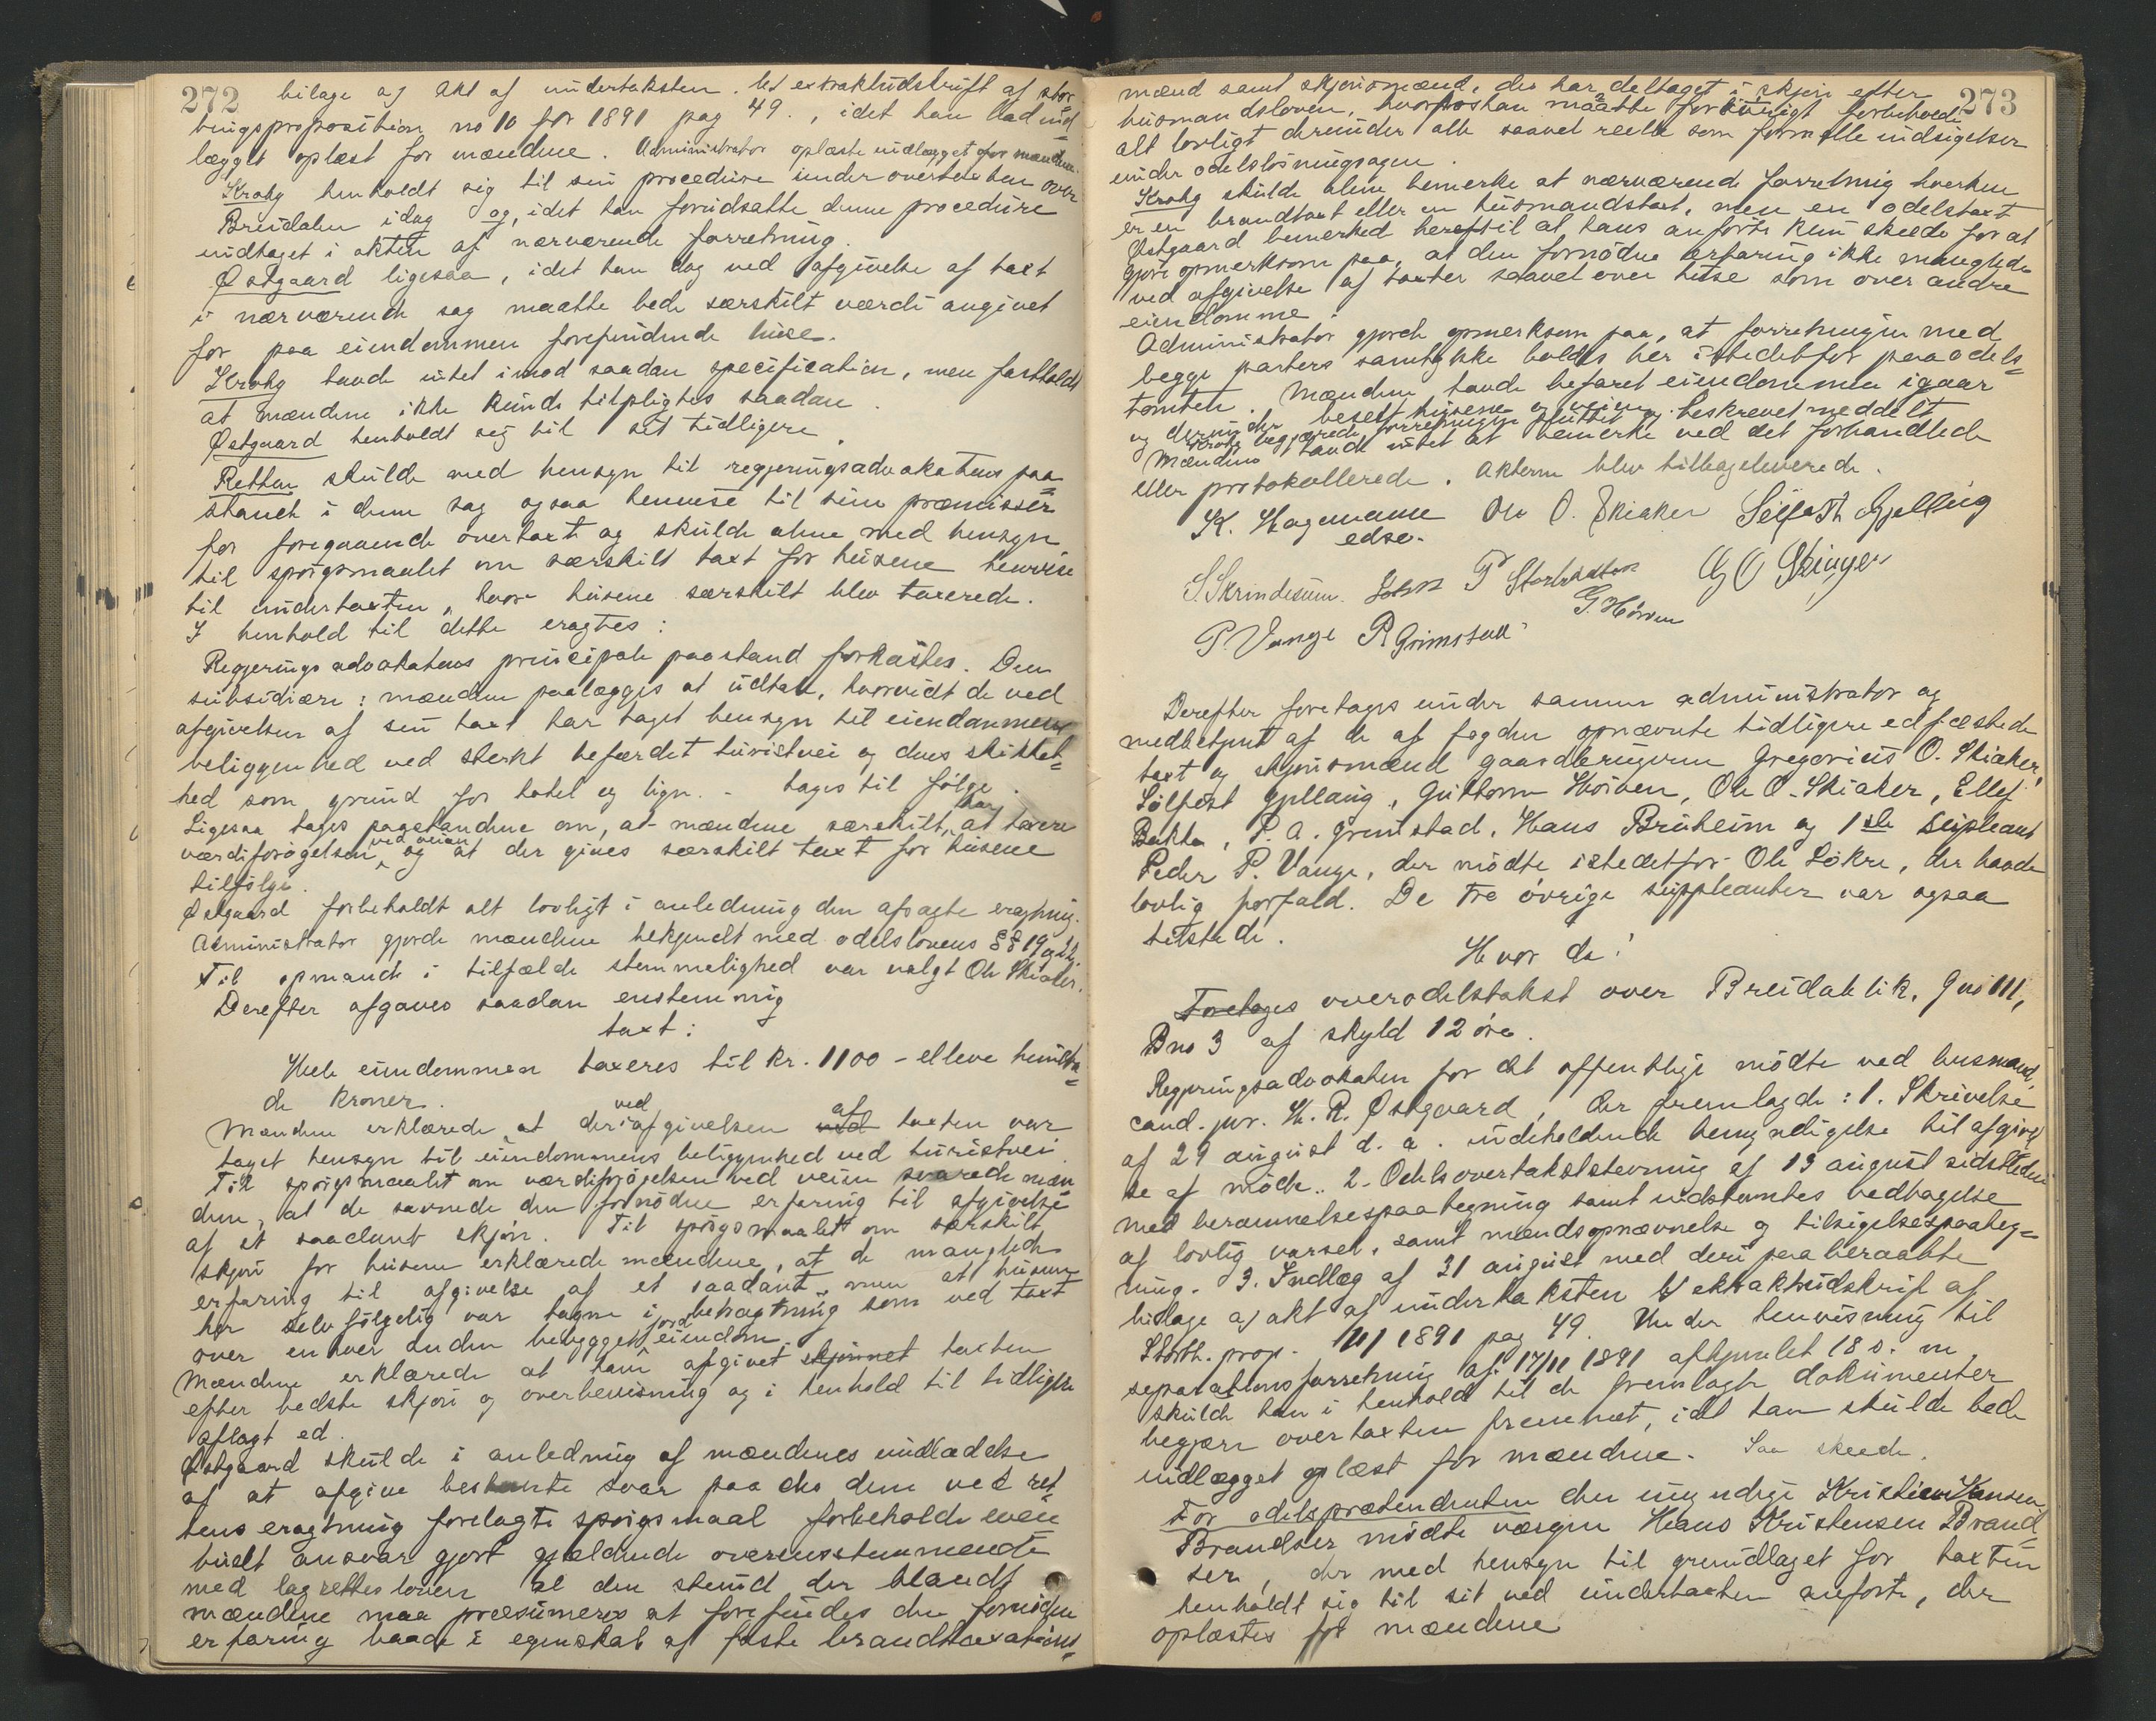 272
bilage a) Akt af undertaksten. b) extraktudskrift af stor-
tingsproposition no 10 for 1891 pag 49., idet han bad ind-
lægget oplæst for mændene. Administrator oplæste indlægget for mændene.
Krohg henholdt sig til sin procedure under overtaxten over
Breidalen idag og, idet han forudsatte denne procedure
indtaget i akten af nærværende forretning.
Østgaard ligesaa, idet han dog ved afgivelse af taxt
i nærværende sag maatte bede særskilt værdi angivet
for paa eiendommen forefindende huse.
Krohg havde intet imod saadan specification, men fastholdt
at mændene ikke kunde tilpligtes saadan.
Østgaard henholdt sig til sit tidligere.
Retten skulde med hensyn til regjeringsadvokatens paa-
stand i denne sag ogsaa henvise til sine præmisser
for foregaaende overtaxt og skulde alene med hensyn
til spørgsmaalet om særskilt taxt for husene henvise
til undertaxten, hvor husene særskilt blev taxerede.
I henhold til dette eragtes:
Regjeringsadvokatens principale paastand forkastes. Den
subsidiære: mændene paalægges at udtale, hvorvidt de ved
afgivelsen af sin taxt har taget hensyn til eiendommens
beliggenhed ved sterkt befærdet turistvei og dens skikket-
hed som grund for hotel og lign. - tages til følge.
Ligesaa tages paastandene om, at mændene særskilt har at taxere
værdiforøgelsen ved veien og at der gives særskilt taxt for husene
tilfølge.
Østgaard forbeholdt alt lovligt i anledning den afsagte eragtning.
Administrator gjorde mændene bekjendt med odelslovens §§ 19 og 24.
Til opmand i tilfælde stemmelighed var valgt Ole Skiaker.
Derefter afgaves saadan enstemmig
taxt:
Hele eiendommen taxeres til kr. 1100 - elleve hundre-
de kroner.
Mændene erklærede at der ved afgivelsen af taxten var
taget hensyn til eiendommens beliggenhed ved turistvei.
Til spørgsmaalet om værdiforøgelsen ved veien svarede mæn-
dene, at de savnede den fornødne erfaring til afgivelse
af et saadant skjøn. Til spørgsmaalet om særskilt
skjøn for husene erklærede mændene, at de manglede
erfaring til afgivelse af et saadant, men at husene
her selvfølgelig var tagne i betragtning som ved taxt
over enhver anden bebygget jordeiendom.
Mændene erklærede at have afgivet skjønnet taxten
efter bedste skjøn og overbevisning og i henhold til tidligere
aflagt ed.
Østgaard skulde i anledning af mændenes undladelse
af at afgive bestemte svar paa de dem ved ret-
tens eragtning forelagte spørgsmaal forbeholde even-
tuelt ansvar gjort gjældende overensstemmende
med lagrettesloven al den stund der blandt
mændene maa præsumeres at forefindes den fornødne
erfaring baade i egenskab af faste brandtaxations-
273
mænd samt skjønsmænd, der har deltaget i skjøn efter
husmandsloven, hvorfor han maatte forbeholde
alt lovligt derunder alle saavel reelle som formelle indsigelser
under odelsløsningssagen.
Krohg skulde alene bemerke at nærværende forretning hverken
er en brandtaxt eller en husmandstaxt, men en odelstaxt
Østgaard bemerked hertil at hans anførte kun skede for at
gjøre opmerksom paa, at den fornødne erfaring ikke manglede
ved afgivelse af taxter saavel over huse som over andre
eiendomme.
Administrator gjorde opmerksom paa, at forretningen med
begge parters samtykke holdes her istedetfor paa odels-
tomten. Mændene havde befaret eiendommen igaar
og derunder beseet husene og veien.
Krohg begjærede forretningen sluttet og beskrevet meddelt
Mændene havde intet at bemerke ved det forhandlede
eller protokollerede. Akterne blev tilbageleverede.
K. Hagemann Ole O. Skiaker Sølfæst Gjelling
edsv.
S. Skrindesum. G O Skiager
G. Hörven
P Vange P. Grimstad
Derefter foretages under samme administrator og
medbetjent af de af fogden opnævnte tidligere edfæstede
taxt og skjønsmænd gaardbrugerne Gregorius O. Skiaker,
Sølfest Gjellaug, Guttorm Hörven, Ole O. Skiaker, Ellef
Bakke, P. A. Grimstad, Hans Bruheim og 1ste supleant
Peder P. Vange, der mødte istedetfor Ole Løkre, der havde
lovlig forfald. De tre øvrige suppleanter var ogsaa
tilstede.
Hvor da:
Foretages overodelstakst over Breidablik, Gno 111,
Bno 3 af skyld 12 øre.
Regjeringsadvokaten for det offentlige mødte ved
cand. jur. H. R. Østgaard, der fremlagde: 1. Skrivelse
af 29 august d. a. indeholdende bemyndigelse til afgivel-
se af møde. 2. Odelsovertakststevning af 13 august sidstleden
med berammelsespaategning samt indstevntes vedtagelse
af lovlig varsel, samt mandsopnævnelse og tilsigelsespaateg-
ning. 3. Indlæg af 31 august med deri paaberaabte
bilage a) akt af undertaksten b) ekstraktudskrift af
Storth. prop. 1891 pag 49. Under henvisning til
separationsforretning af 17/11 1891 afhjemlet 18 s. m.
skulde han i henhold til de fremlagte dokumenter
begjære overtaxten fremmet, idet han skulde bede
indlægget oplæst for mændene. Saa skeede.
For odelsprætendenten den umyndige Kristian Hansen
Brandser mødte værgen Hans Kristensen Brand-
ser, der med hensyn til grundlaget for taxten
henholdt sig til sit ved undertaxten anførte, der
oplæstes for mændene